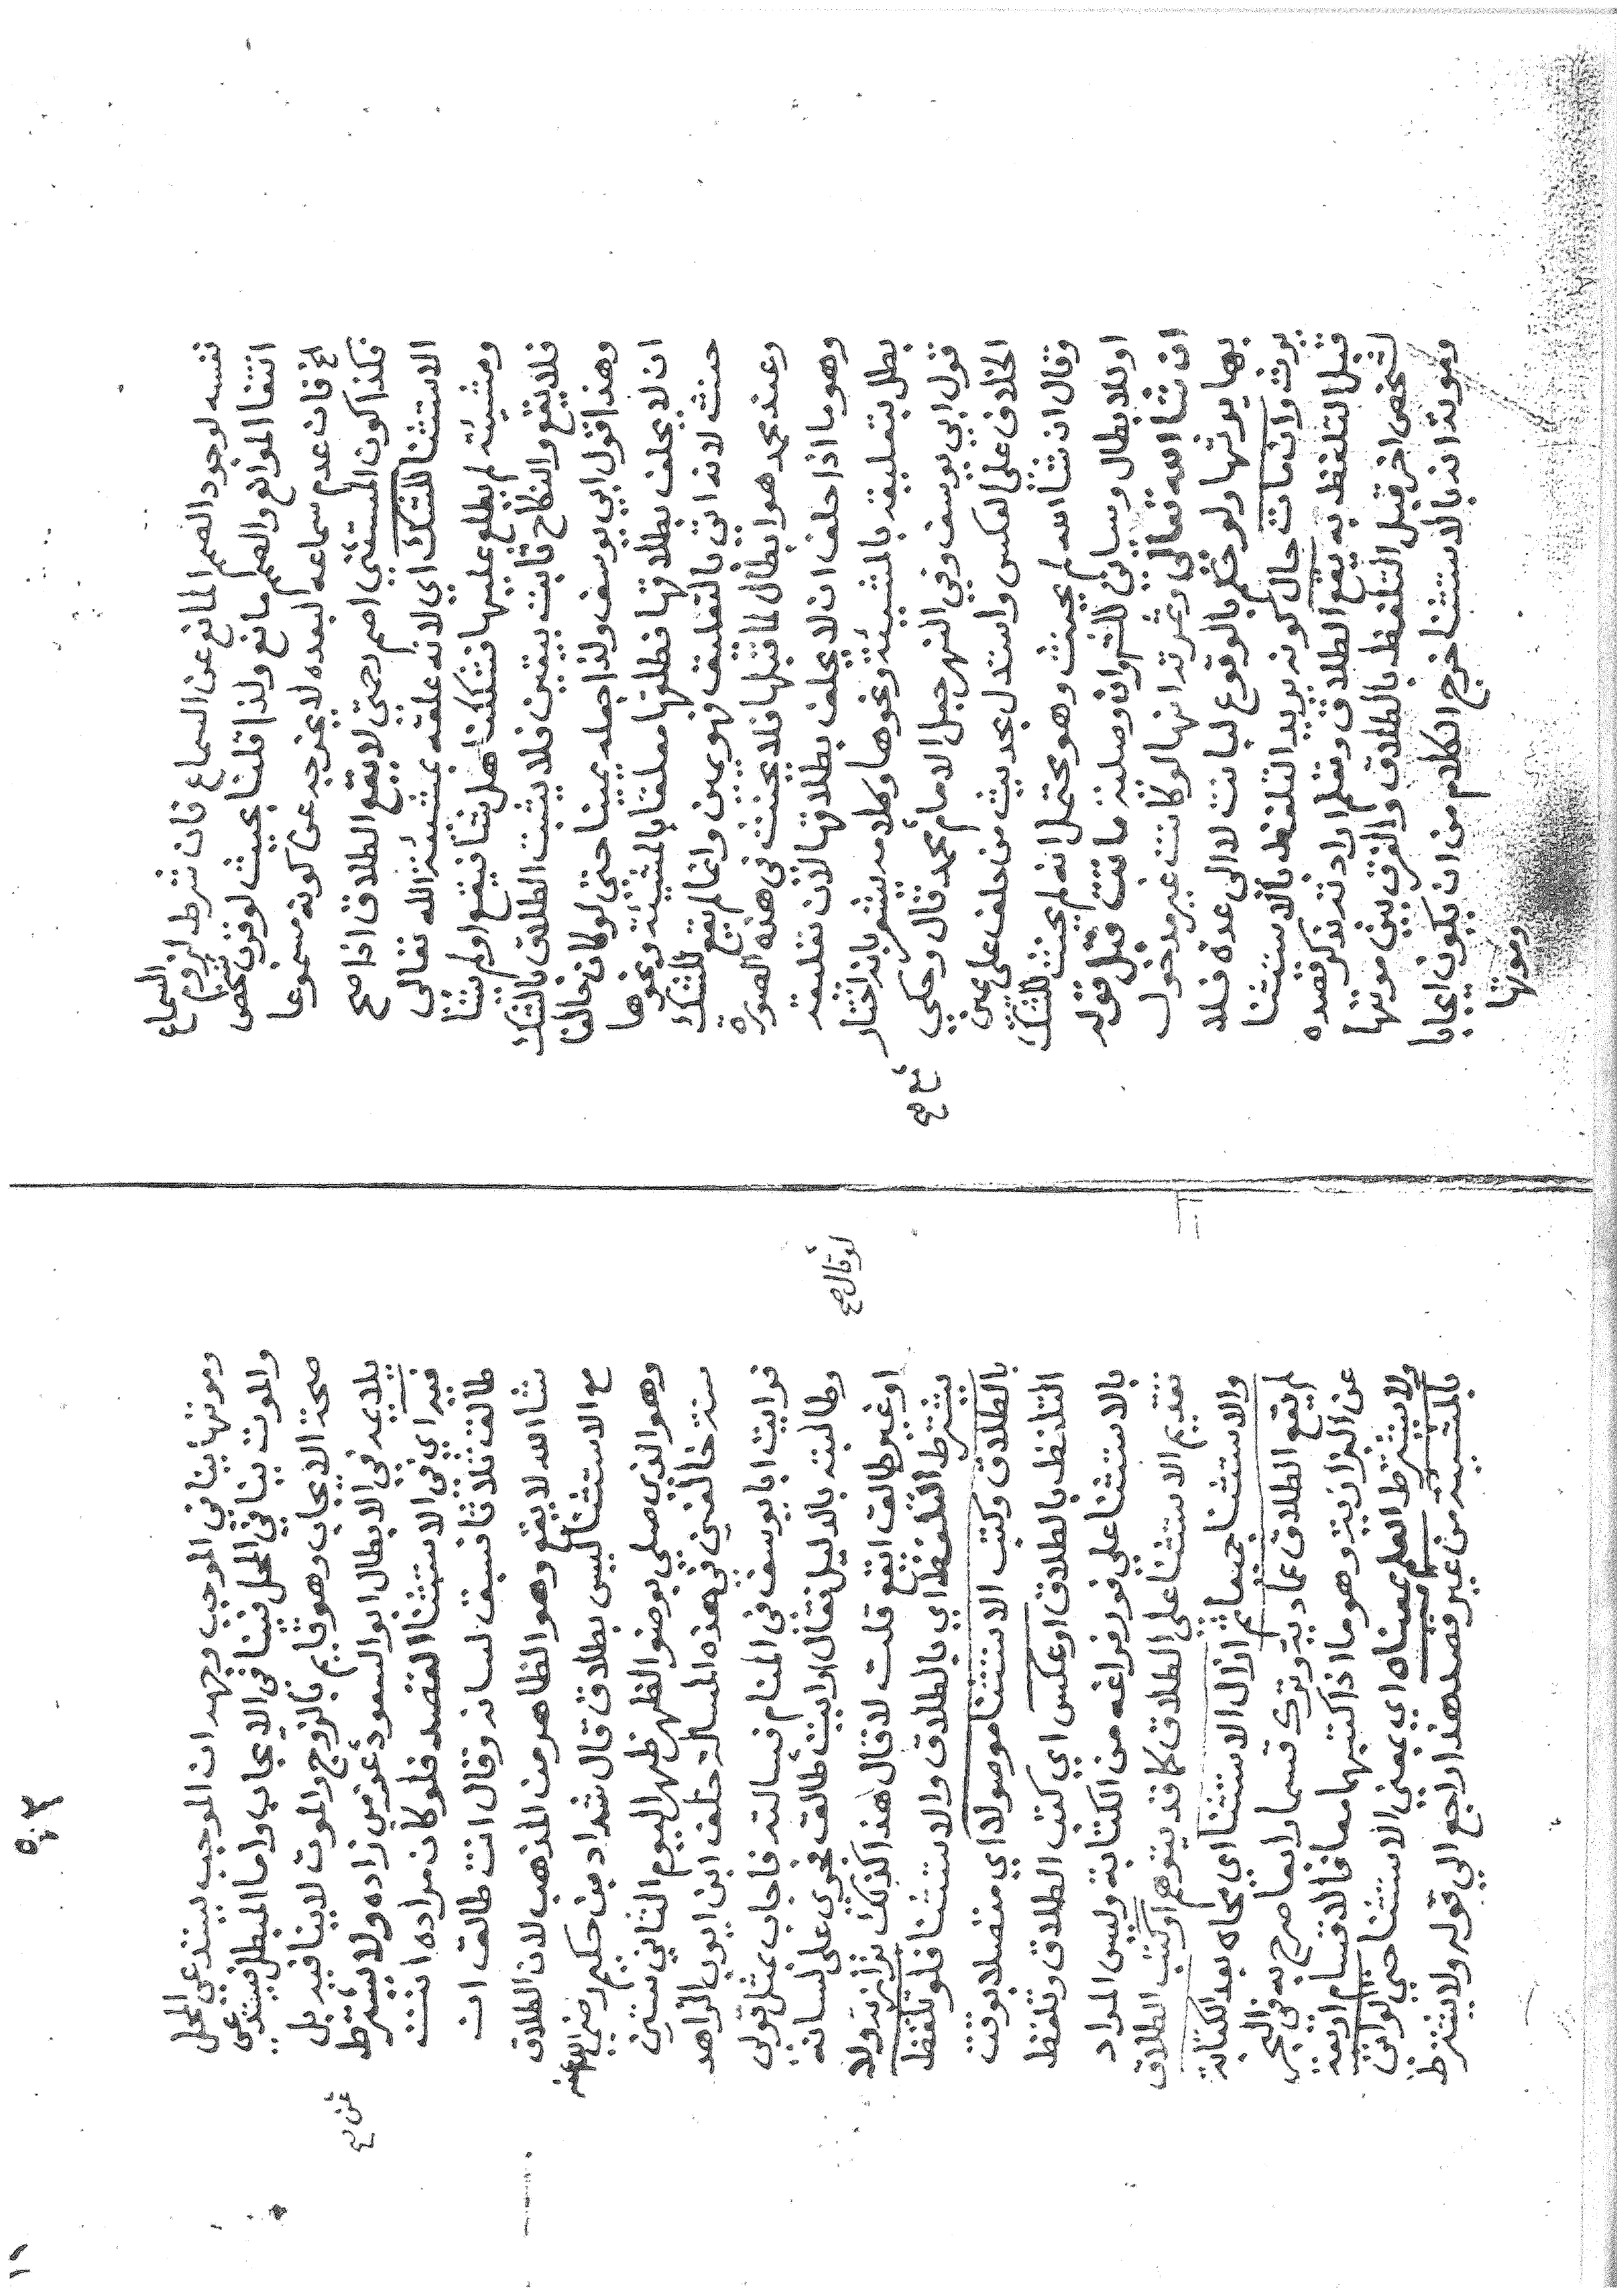 نفسه لوجود الصمم المانع عن السماع فان شرط لزوم السماع
انتفا الموانع والصمم مانع ولذا قلنا بحيث لو قرب شخص
الخ فان عدم سماعه لبعده لا يخرجه عن كونه مسموعا
فكذا كون المستثني اصم حتي لا يقع الطلاق اذا صح
الاستثنا للشك اي لانه علقه بمشيئة الله تعالى
ومشيئته لم يطلع عليها فشككنا هل شا فيقع اولم يشا
فلا يقع والنكاح ثابت بيقين فلا يثبت الطلاق بالشك
وهذا قول ابي يوسف ولذا جعله يمينا حتى لو كان حالفا
ان لا يحلف بطلاقها فطلقها معلقا بالمشيئة ونحوها
حنث لانه اتى بالتعليق فهو يمين وانما لم يقع للشك
وعند محمد هو ابطال لما قبلها فلا يحنث في هذه الصورة
وهو ما اذا حلف ان لا يحلف بطلاقها لان تعليقه
بطل بتعليقه بالمشيئة ونحوها وكلامه يشعر بانه اختار
قول ابي يوسف وفي النهر جعل الامام محمد قال وحكي
الخلاف على العكس واستدل بحديث من حلف على يمين
وقال ان شا الله لم يحنث وهو يحتمل انه لم يحنث للشك
او للابطال وسياتي وان وصلية ماتت قبل قوله
ان شا الله تعالى وثمرته انها لو كانت غير مدخول
بها يرثها ولو حكم بالوقوع لبانت لا الى عدة فلا
يرث وان مات حال كونه يريد التلفظ بالاستثنا
قبل التلفظ به يقع الطلاق وتعلم ارادته بذكر قصده
لشخص اخر قبل التلفظ بالطلاق والفرق بين موتها
وموته انه بالاستثنا خرج الكلام من ان يكون ايجابا
وموتها
٥٠٢
وموتها ينافي الموجب وجهه ان الموجب يستدعي المحل
والموت ينافي المحل فينافي الايجاب واما المبطل فيستدعي
صحة الايجاب وهو قايم بالزوج والموت لا ينافيه بل
يلايمه في الابطال ابو السعود عن عزمي زاده ولا يشترط
فيه اي في الاستثنا القصد فلو كان مراده انت
طالق ثلاثا فسبق لسانه وقال انت طالق ان
شا الله لا يقع وهو الظاهر من المذهب لان الطلاق
مع الاستثنا ليس بطلاق قال شداد بن حكيم رضي الله عنه
وهو الذي صلى بوضوا الظهر ظهر اليوم الثاني ستين
سنة خالفني في هذه المسالة خلف ابن ايوب الزاهد
فرايت ابا يوسف في المنام فسالته فاجاب بمثل قولي
وطالبته بالدليل فقال ارايت طالق فجري على لسانه
لو قال صح
او غير طالق ايقع قلت لا قال هذا كذلك بزازية ولا
يشترط التلفظ اي بالطلاق والاستثنا فلو تلفظ
بالطلاق وكتب الاستثنا موصولا اي متصلا بوقت
التلفظ بالطلاق او عكس اي كتب الطلاق وتلفظ
بالاستثنا على فور فراغه من الكتابة وليس المراد
تقديم الاستثنا على الطلاق كما قد يتوهم او كتب الطلاق
والاستثنا جميعا ثم ازال الاستثنا اي محاه بعد الكتابة
لم يقع الطلاق عمادية وترك قسما رابعا صرح به في البحر
عن البزازية وهو ما اذا كتبهما معا فالاقسام اربعة
ولا يشترط العلم بمعناه اي بمعنى الاستثنا حتي لو اتى
بالمشيئة من غير قصد هذا راجع الي قوله ولا يشترط